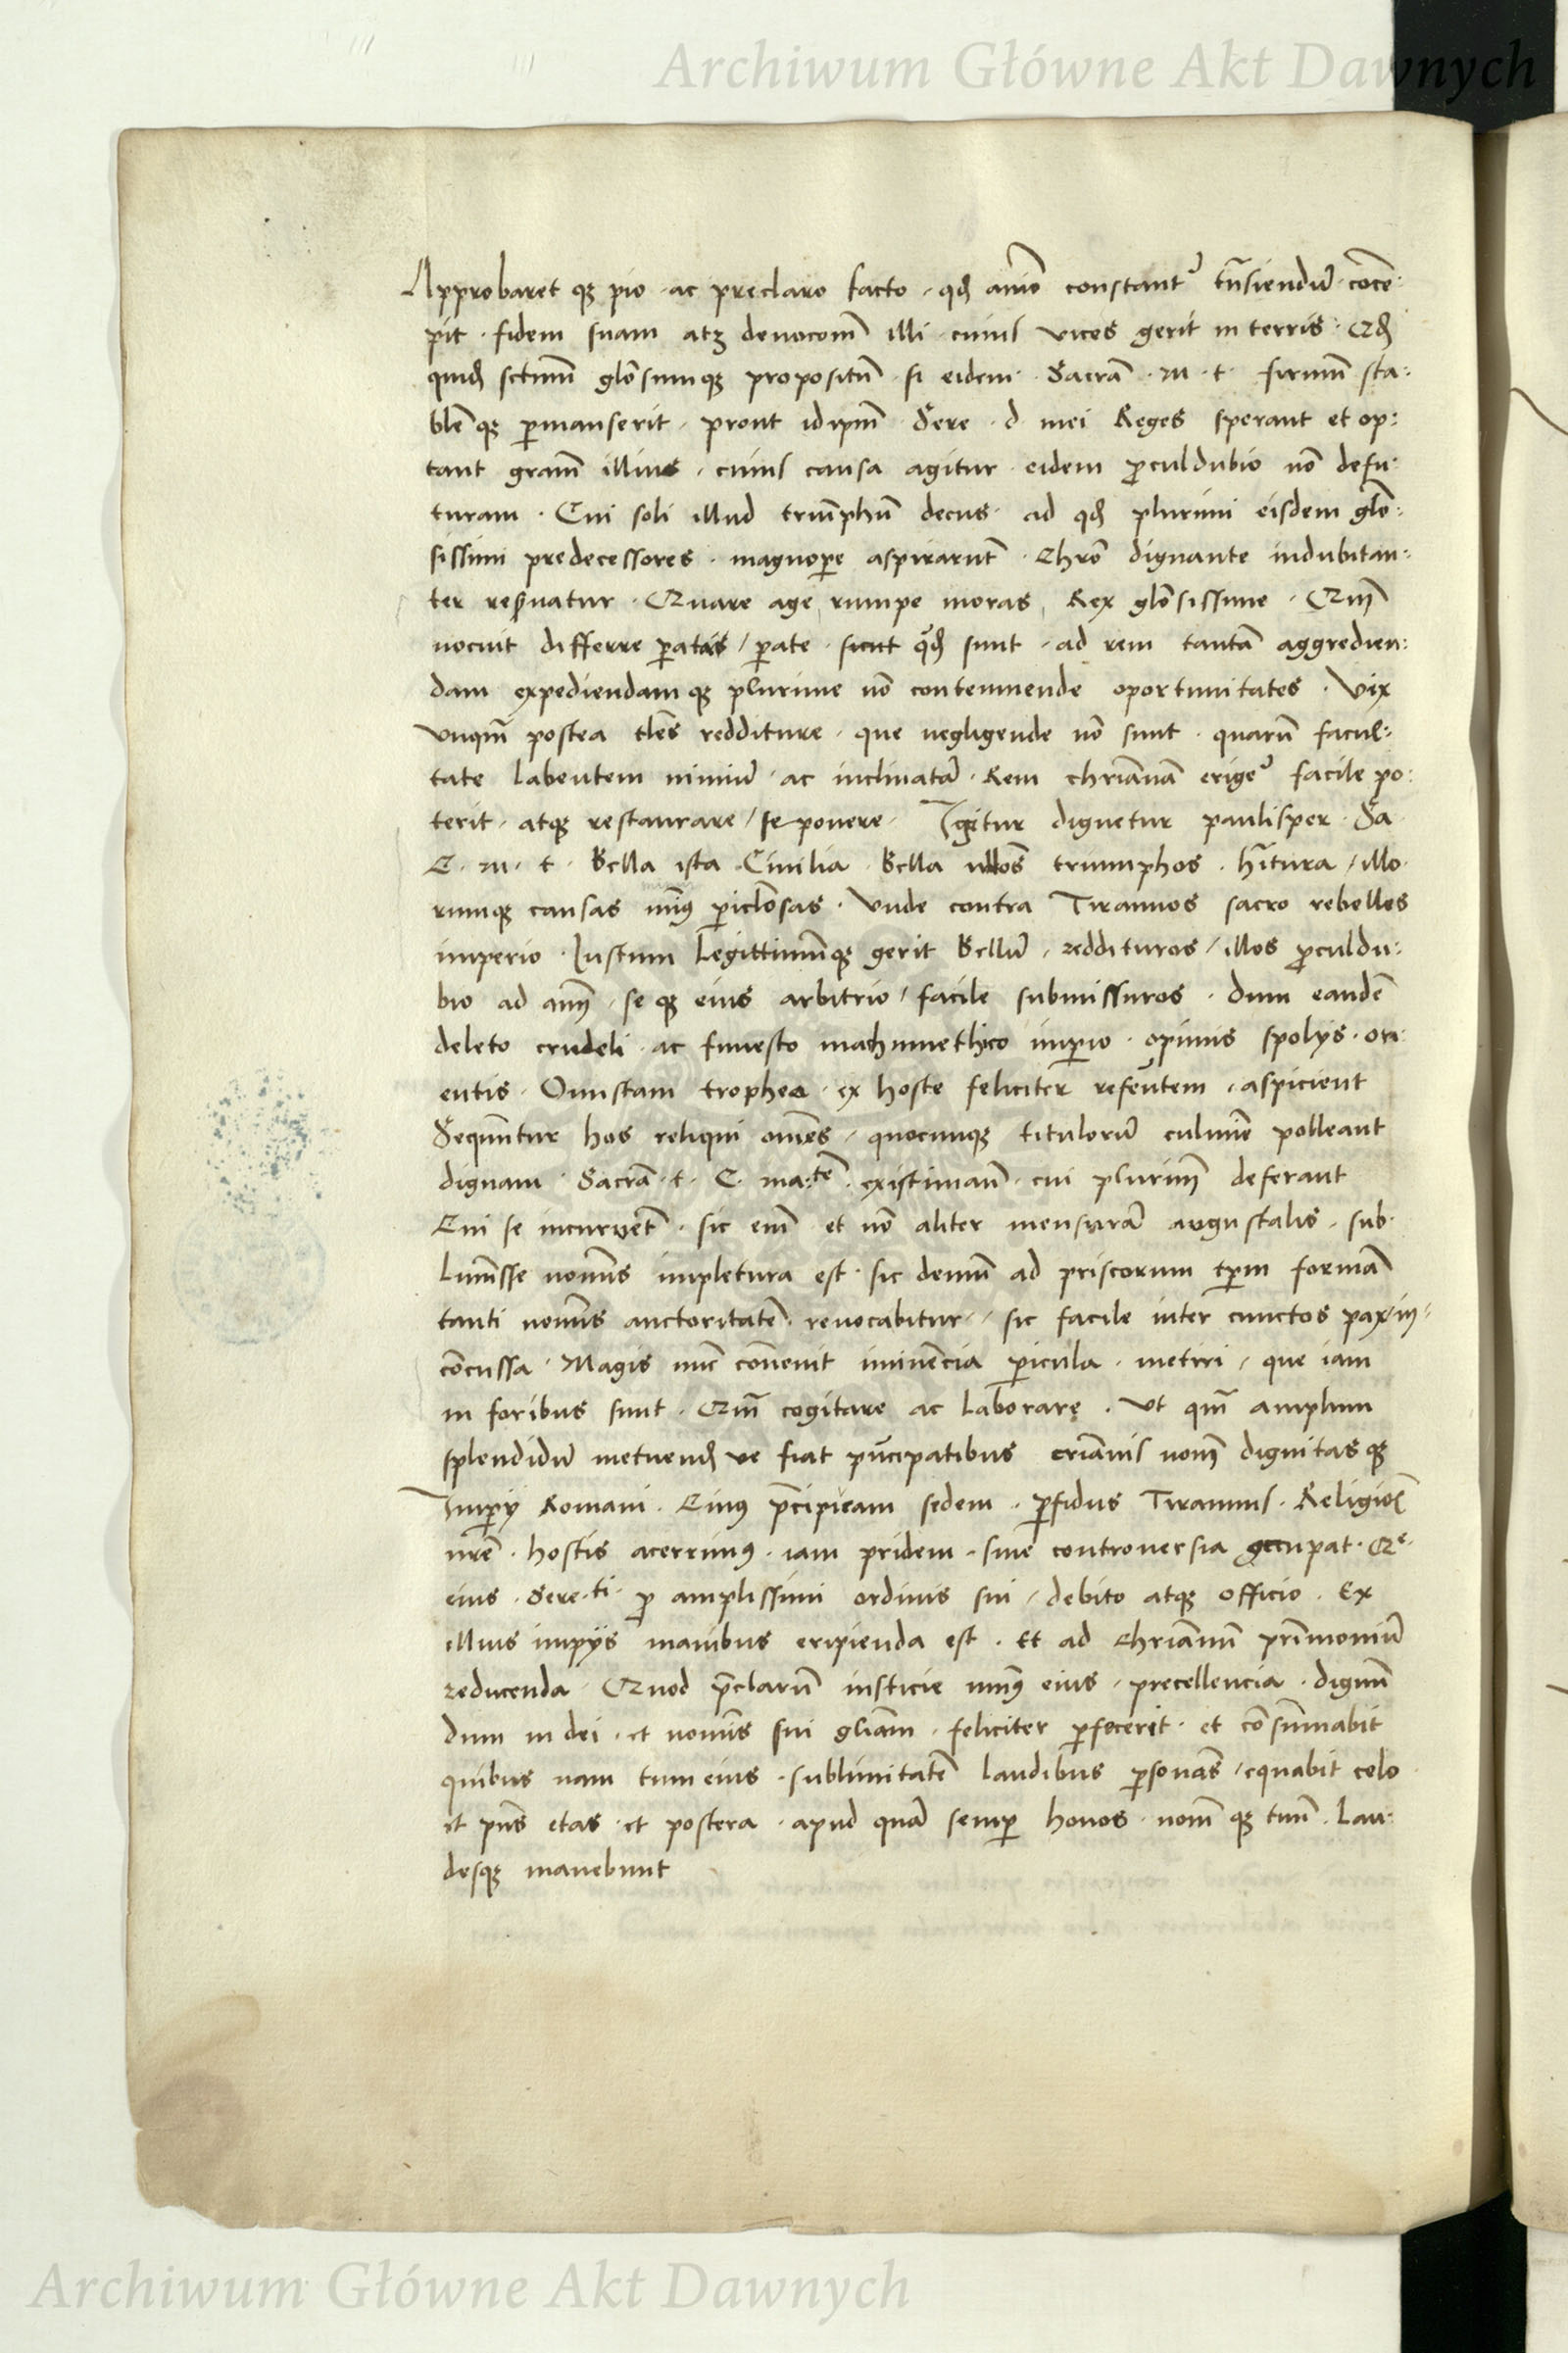 Archiwum Główne Akt Dawnych
Approbaret q; pio · ac preclaro facto · qđ aīo constant' trāsiendū · cōce:
pit · fidem suam atq; deuocōm illi · cuius vices gerit in terris · Qđ
quiđ sctūm glōsumq; propositū · si eidem · Sacrā · m · t · firmum sta:
blēq; pmanserit · prout idipm̄ Sere · d · mei Reges sperant et op:
tant gram̄ illius · cuius causa agitur · eidem proculdubio nō defu:
turam · Cui soli illud triūphū decus · ad qđ plurimi eisdem glō:
sissimi predecessores · magnope aspirarunt · Chrō dignante indubitan:
ter reseruatur · Quare age rumpe moras Rex glōsissime · Qm̄
nocuit differre patas / pate · sicut q̄đ sunt · ad rem tantā aggredien:
dam expediendamq; plurime nō contemnende oportunitates · Vix
vnqm̄ postea tles redditure · que negligende nō sunt · quarū facul:
tate labentem nimiū · ac inclinatā · Rem chrianā erige' facile po:
terit · atq; restaurare / seponere · Igitur dignetur paulisper · Sa
C · m · t · Bella ista Ciuilia · Bella nullos triumphos · hītura / illo
rumq; causas minus piclosas · Vnde contra Tirannos sacro rebelles
imperio · Iustum Legittimūq; gerit Bellū · reddituros / illos proculdu:
bio ad anim̄ · se q; eius arbitrio / facile submissuros · dum eandē
deleto crudeli · ac funesto machumethico impio · opimis spolijs · ori
entis · Onustam trophea · ex hoste feliciter referentem · aspicient
Sequūtur hos reliqui om̄es · quocunq; titulorū culmine polleant
dignam · Sacrā · t · C · ma:tē · existimant · cui plurim̄ deferant
Cui se incuruēt · sic em̄ et nō aliter mensurā augustalis · sub
limisse nominis impletura est · sic demū ad priscorum tpm formā
tanti nominis auctoritatē reuocabitur · sic facile inter cunctos pax in:
cōcussa · Magis nūc conuenit iminēcia picula · metiri · que iam
in foribus sunt · Qm̄ cogitare ac laborare · Vt qm̄ amplum
splendidū metuenđ ve fiat prīcipatibus crianis nom̄ dignitasq;
Impij Romani · Cuius prēcipieam sedem · pfidus Tirannus · Religiōis
nrē · hostis acerrimus · iam pridem · sine controuersia occupat · Qe
eius · Sere·ti · p amplissimi ordinis sui / debito atq; officio · Ex
illius impijs manibus eripienda est · Et ad Chrianū prīmoniū
reducenda · Quod preclarū iusticie munus eius · precellencia · dignū
dum in dei · et nominis sui gliam · feliciter pfecerit · et cōsummabit
quibus nam tum eius · sublimitatē laudibus psonās / equabit celo
et pn̄s etas · et postera · apud quā semp honos · nom̄ q; tuū · Lau:
desq; manebunt
Archiwum Główne Akt Dawnych